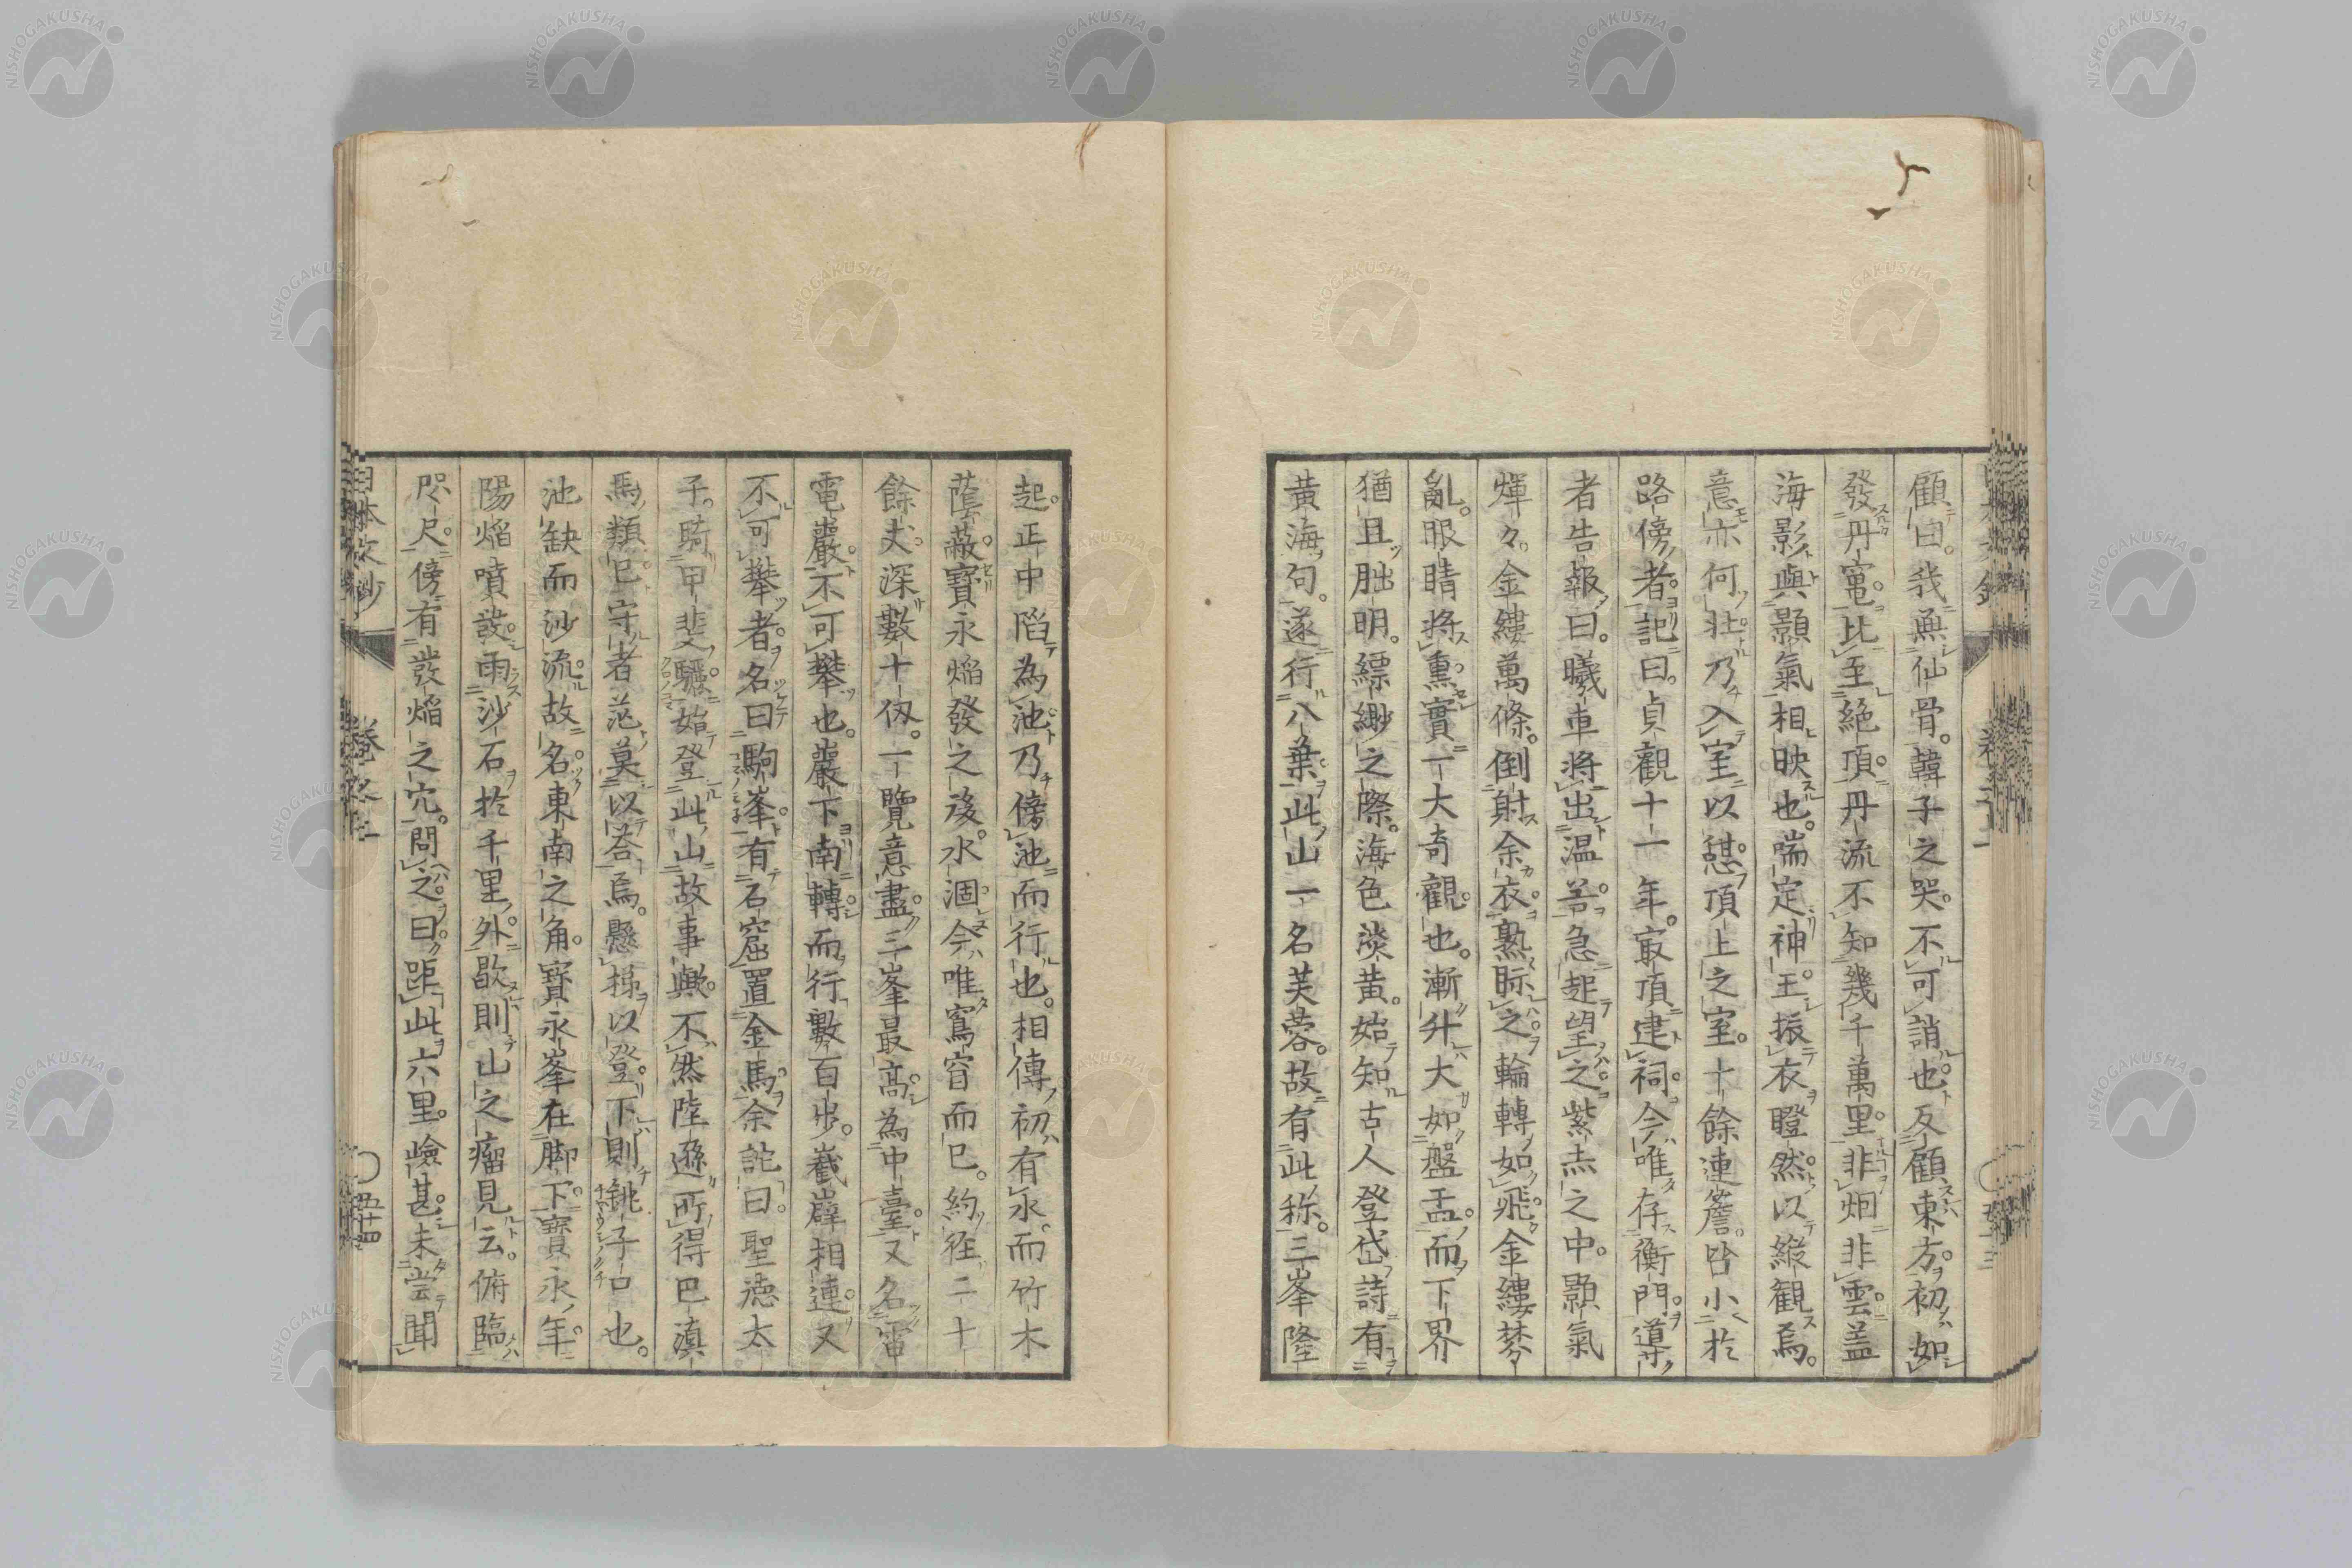 顧曰。我無仙骨。韓子之哭。不可誚也。反顧東方。初如
發丹竃。比至絶頂。丹流不知幾千萬里。非烟非雲。盖
海影與顥氣相映也。喘定神王。振衣瞪然以縱觀焉。
意亦何壯乃入室以憩。頂上之室。十餘連簷。皆小於
路傍者。記曰。貞觀十一年。㝡頂建祠。今唯存衡門。導
者告報曰。曦車將出温谷。急起望之。紫赤之中。顥氣
燀々。金縷萬條。倒射余衣。熟眎之。輪轉如飛。金縷棼
亂。眼睛將熏。實一大奇觀也。漸升大如盤盂。而下界
猶且朏明。縹緲之際。海色淡黄。始知古人登岱詩有
黄海句。遂行八葉。此山一名芙蓉。故有此称。三峯隆
起。正中陷為池乃傍池而行也。相傳初有水。而竹木
蔭蔽。寳永焔發之後。水涸今唯窵窅而已。約徑二十
餘丈。深數十仭。一覽意盡。三峯最高。為中臺。又名雷
電巖。不可攀也。巖下南轉而行數百步。巀嶭相連。又
不可攀者。名曰駒峯。有石窟置金馬。余詫曰。聖德太
子。騎甲斐驪。始登此山故事歟。不然陸遜所得巴滇
馬類已。守者茫莫以荅焉。懸梯以登。下則銚子口也。
池缺而沙流。故名東南之角。寳永峯在脚下。寳永年
陽焔噴發。雨沙石於千里外。歇則山之瘤見云。俯臨
咫尺。傍有發焔之穴。問之。曰。距此六里。嶮甚。未嘗聞
日本文鈔
巻之二
五十四